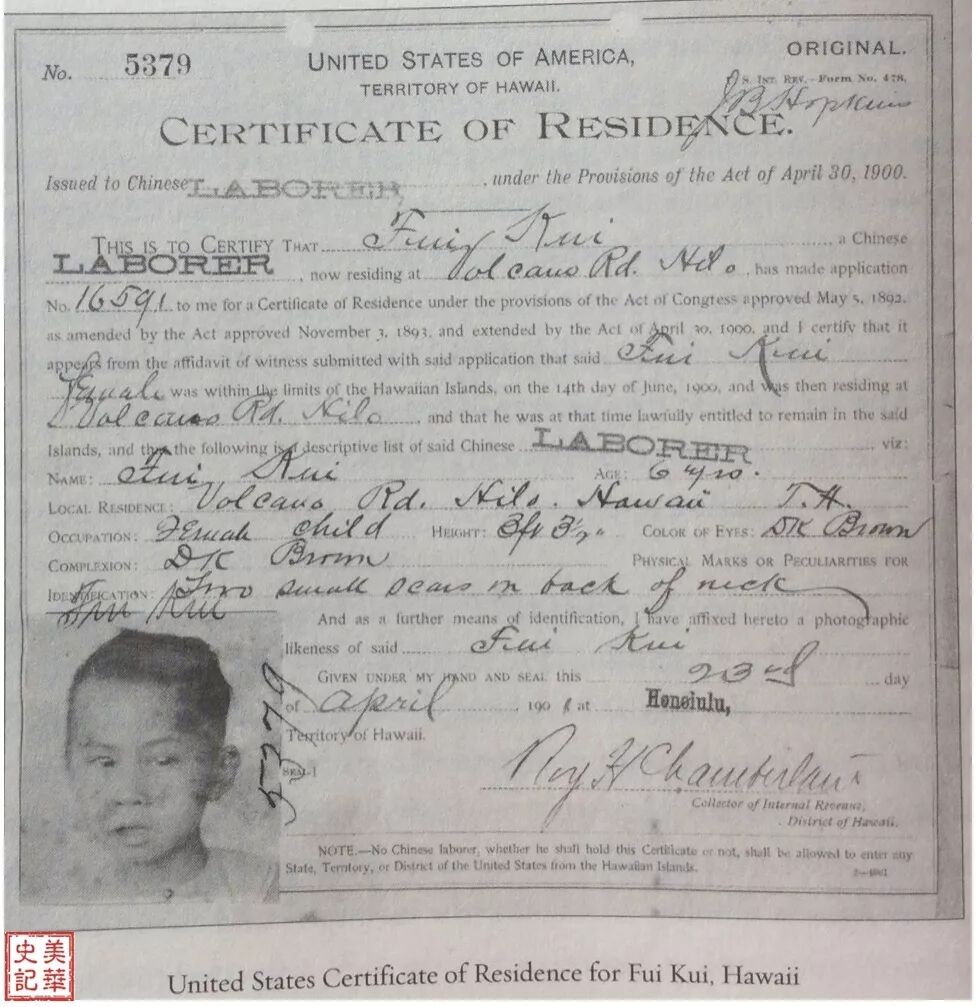 No. 5379
UNITED STATES OF AMERICA,
TERRITORY OF HAWAII.
ORIGINAL.
U. S. INT. REV.—FORM NO. 478.
J B Hopkins
CERTIFICATE OF RESIDENCE.
Issued to Chinese LABORER, under the Provisions of the Act of April 30, 1900.
THIS IS TO CERTIFY THAT Fui Kui a Chinese
LABORER, now residing at Volcano Rd. Hilo, has made application
No. 16591 to me for a Certificate of Residence under the provisions of the Act of Congress approved May 5, 1892,
as amended by the Act approved November 3, 1893, and extended by the Act of April 30, 1900, and I certify that it
appears from the affidavit of witness submitted with said application that said Fui Kui
Female was within the limits of the Hawaiian Islands, on the 14th day of June, 1900, and was then residing at
Volcano Rd. Hilo, and that he was at that time lawfully entitled to remain in the said
Islands, and that the following is a descriptive list of said Chinese LABORER viz:
NAME: Fui Kui AGE: 6 yrs.
LOCAL RESIDENCE: Volcano Rd. Hilo. Hawaii T.H.
OCCUPATION: Female child HEIGHT: 3ft 3½" COLOR OF EYES: DK Brown
COMPLEXION: DK Brown PHYSICAL MARKS OR PECULIARITIES FOR
IDENTIFICATION: Two small scars on back of neck
Fui Kui
And as a further means of identification, I have affixed hereto a photographic
likeness of said Fui Kui
GIVEN UNDER MY HAND AND SEAL this 23rd day
of April 1901 at Honolulu,
Territory of Hawaii.
SEAL
5379
Roy H Chamberlain
Collector of Internal Revenue,
District of Hawaii.
NOTE.—No Chinese laborer, whether he shall hold this Certificate or not, shall be allowed to enter any
State, Territory, or District of the United States from the Hawaiian Islands.
美華史記
United States Certificate of Residence for Fui Kui, Hawaii